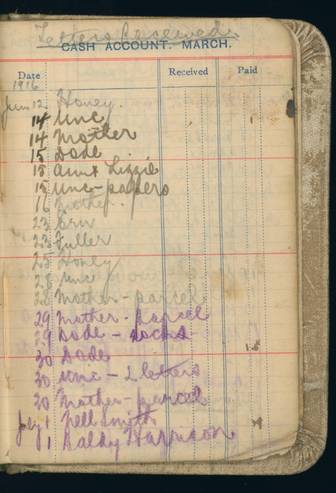 Letters Received
CASH ACCOUNT. MARCH.
Date Received Paid
1916
June 12 Honey.
14 Unc
14 Mother
15 Dode
15 Aunt Lizzie
15 Unc - papers
16 Mother.
23 Erw
23 Fuller
25 Honey
26 Unc
28 Mother - parcel
29 Mother - Parcel
29 Dode - socks
30 Dode
30 Unc - 2 letters
30 Mother - parcel
July 1 Nell Smyth
1 Harrison